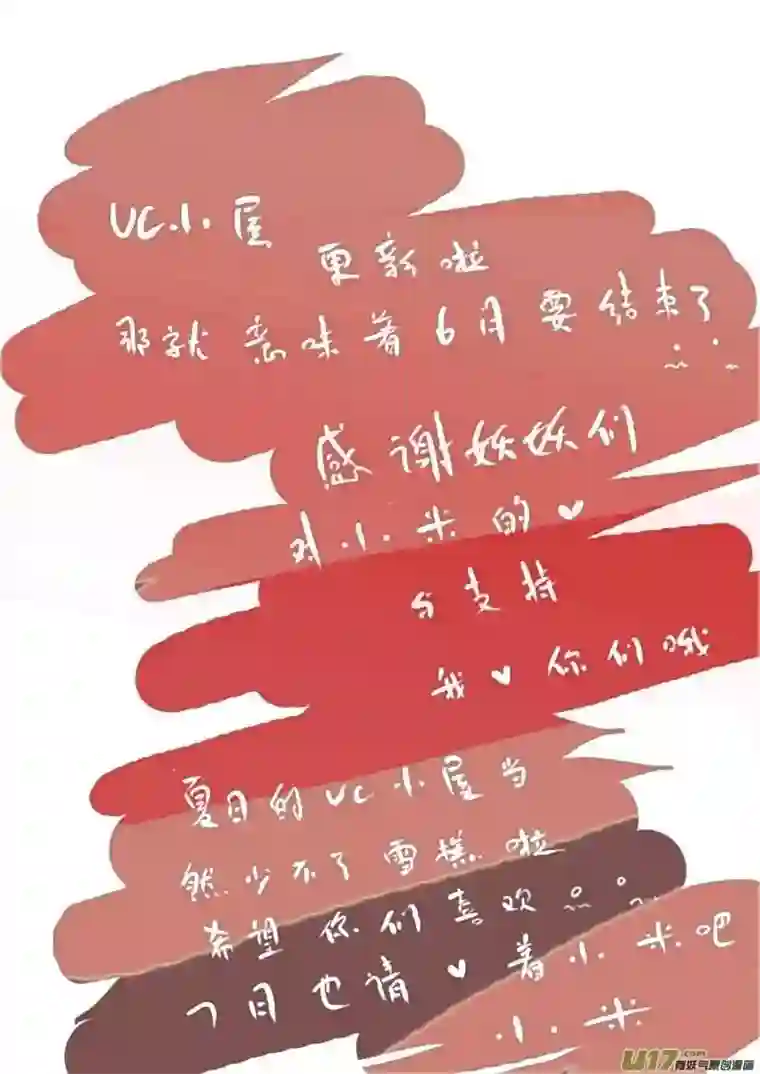 UC小屋
更新啦
那就意味着6月要结束了
感谢妖妖们
对小米的♥
与支持
我♥你们哦
夏日的UC小屋当
然少不了雪糕啦
希望你们喜欢
7月也请♥着小米吧
小米
U17.com
有妖气原创漫画